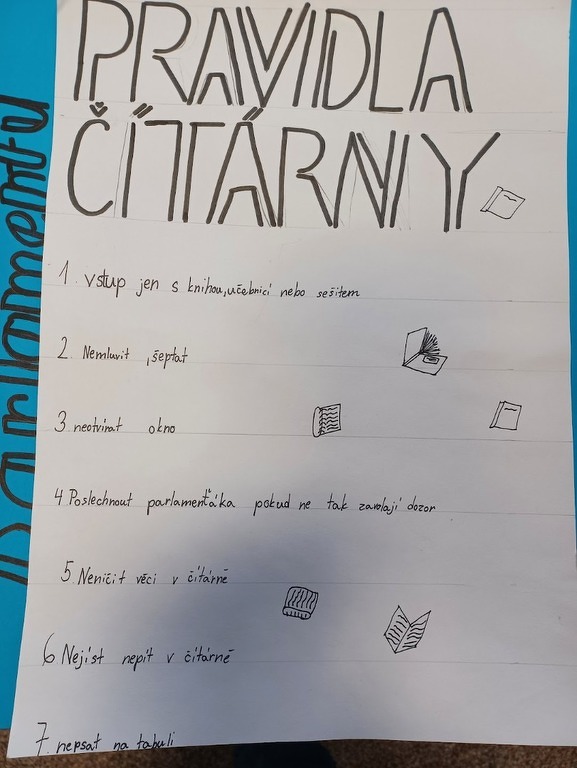 PRAVIDLA
ČÍTÁRNY
1. vstup jen s knihou,učebnicí nebo sešitem
2. Nemluvit ,šeptat
3. neotvírat okno
4 Poslechnout parlamenťáka pokud ne tak zavolají dozor
5. Neničit věci v čítárně
6 Nejíst nepít v čítárně
7. nepsat na tabuli
parlamentu